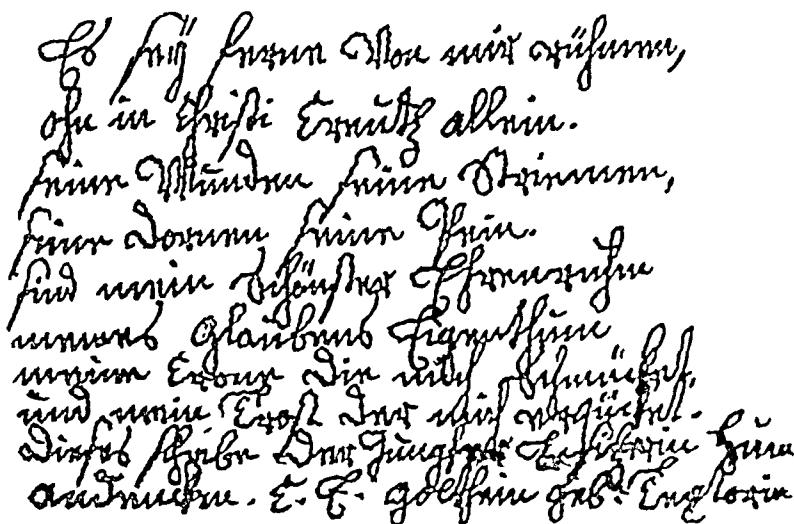 Es seÿ ferne Von mir rühmen,
ohn in Christi Creutz allein.
seine Wunden seine Striemen,
seine Dornen seine Pein.
sind mein Schönster Ehrenruhm
meines Glaubens Eigenthum
meine Crone die mich Schmücket.
und mein Trost der mich erquicket.
Dieses schreibe Der Jungfer zum
andencken. C. E. geb: Textorin